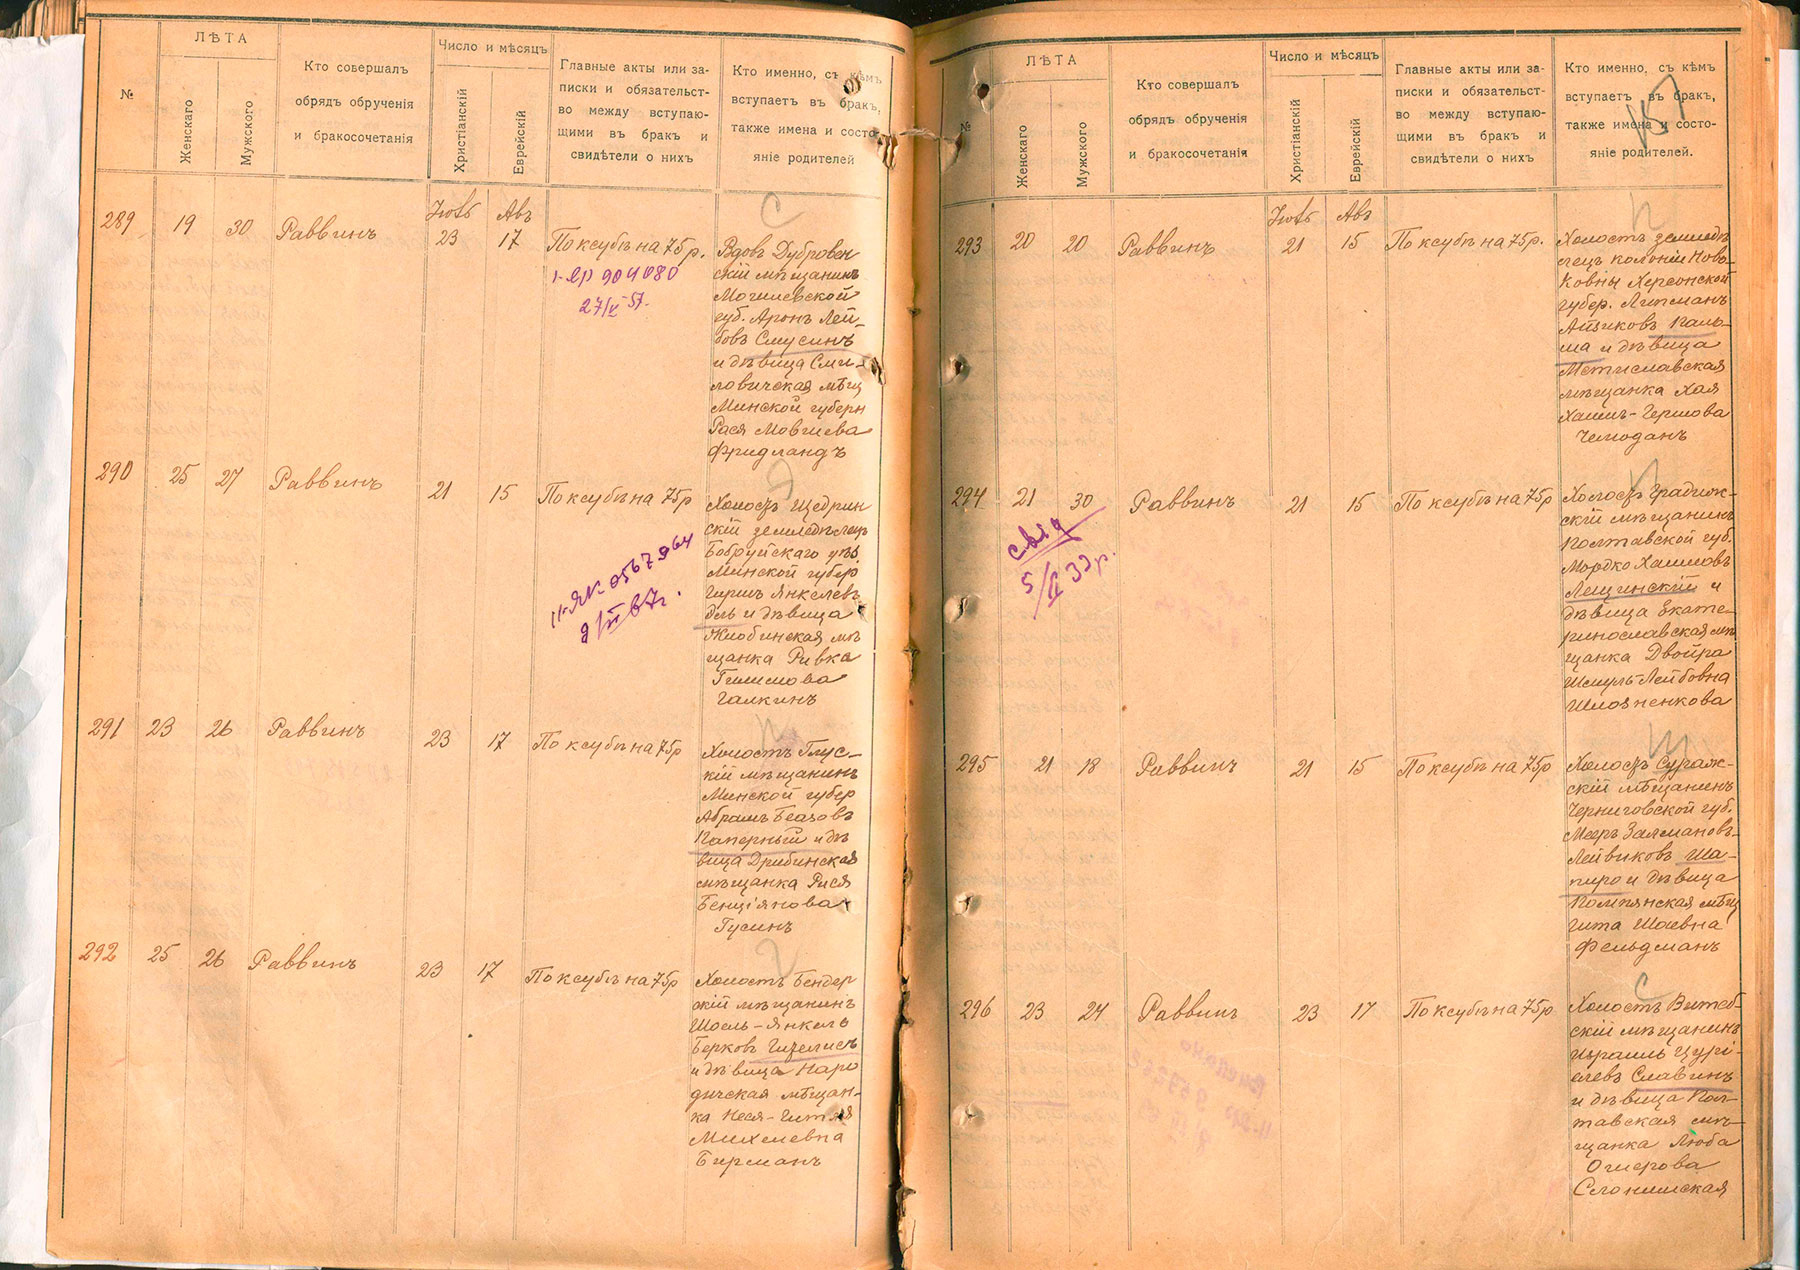 №
ЛѢТА
Женскаго
Мужского
Кто совершалъ
обрядъ обрученія
и бракосочетанія
Число и мѣсяцъ
Христіанскій
Еврейскій
Главные акты или за-
писки и обязательст-
во между вступаю-
щими въ бракъ и
свидѣтели о нихъ
Кто именно, съ кѣмъ
вступаетъ въ бракъ,
также имена и состо-
яніе родителей
289 19 30 Раввинъ
Авъ
23 17 По ксубѣ на 75 р.
27/V-57.
Вдовъ Дубровен
скій мѣщанинъ
Могилевской
губ. Аронъ Лей-
бовъ Смусинъ
и дѣвица Сми-
ловичская мѣщ
Минской губерн
Рася Мовшева
Фридландъ
290 25 27 Раввинъ 21 15 По ксубѣ на 75 р
9/III 67г.
Холостъ Щедрин
скій земледѣлецъ
Бобруйскаго уѣз
Минской губер
Гиршъ Янкелевъ
и дѣвица
Жлобинская мѣ
щанка Ривка
Галкинъ
291 23 26 Раввинъ 23 17 По ксубѣ на 75 р
Холостъ Глус-
кій мѣщанинъ
Минской губер
Абрамъ
Каперный и дѣ
вица Дрибинская
мѣщанка Рися
Бенціянова
Гусинъ
292 25 26 Раввинъ 23 17 По ксубѣ на 75 р
Холостъ Бендер
скій мѣщанинъ
Шоель-Янкель
Берковъ
и дѣвица Наро
дичская мѣщан-
ка Неся-Гитля
Михелевна
Бирманъ
№
ЛѢТА
Женскаго
Мужского
Кто совершалъ
обрядъ обрученія
и бракосочетанія
Число и мѣсяцъ
Христіанскій
Еврейскій
Главные акты или за-
писки и обязательст-
во между вступаю-
щими въ бракъ и
свидѣтели о нихъ
Кто именно, съ кѣмъ
вступаетъ въ бракъ,
также имена и состо-
яніе родителей.
157
293 20 20 Раввинъ
Авъ
21 15 По ксубѣ на 75 р.
Холостъ земледѣ
лецъ колоніи Ново-
Ковны Херсонской
губер. Липманъ
Айзиковъ Каль-
ма и дѣвица
Мстиславская
мѣщанка Хая
Хаимъ-Гершова
Чемоданъ
294 21 30 Раввинъ 21 15 По ксубѣ на 75 р
Холостъ Градиж-
скій мѣщанинъ
Полтавской губ.
Мордко Хаимовъ
Лещинскій и
дѣвица Екате-
ринославская мѣ
щанка Двойра
Шмуль-Лейбовна
295 21 18 Раввинъ 21 15 По ксубѣ на 75 р
Холостъ Сураж-
скій мѣщанинъ
Черниговской губ.
Мееръ Залмановъ-
Лейвиковъ Ша-
пиро и дѣвица
мѣщ
Гита Шаевна
Фельдманъ
296 23 24 Раввинъ 23 17 По ксубѣ на 75 р
Холостъ Витеб-
скій мѣщанинъ
Израиль Цурі-
елевъ Славинъ
и дѣвица Пол-
тавская мѣ-
щанка Люба
Ошерова
Слонимская